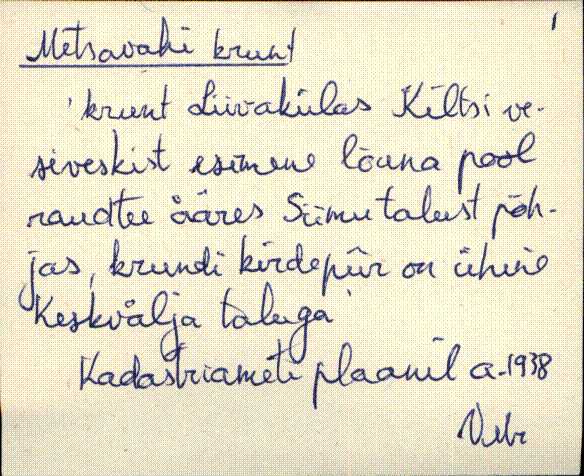 1
Metsavahi krunt
'krunt Liivakülas Kiltsi ve-
siveskist esimene lõuna pool
raudtee ääres Siimu talust põh-
jas, krundi kirdepiir on ühine
Keskvälja taluga'
Kadastriameti plaanil a. 1938